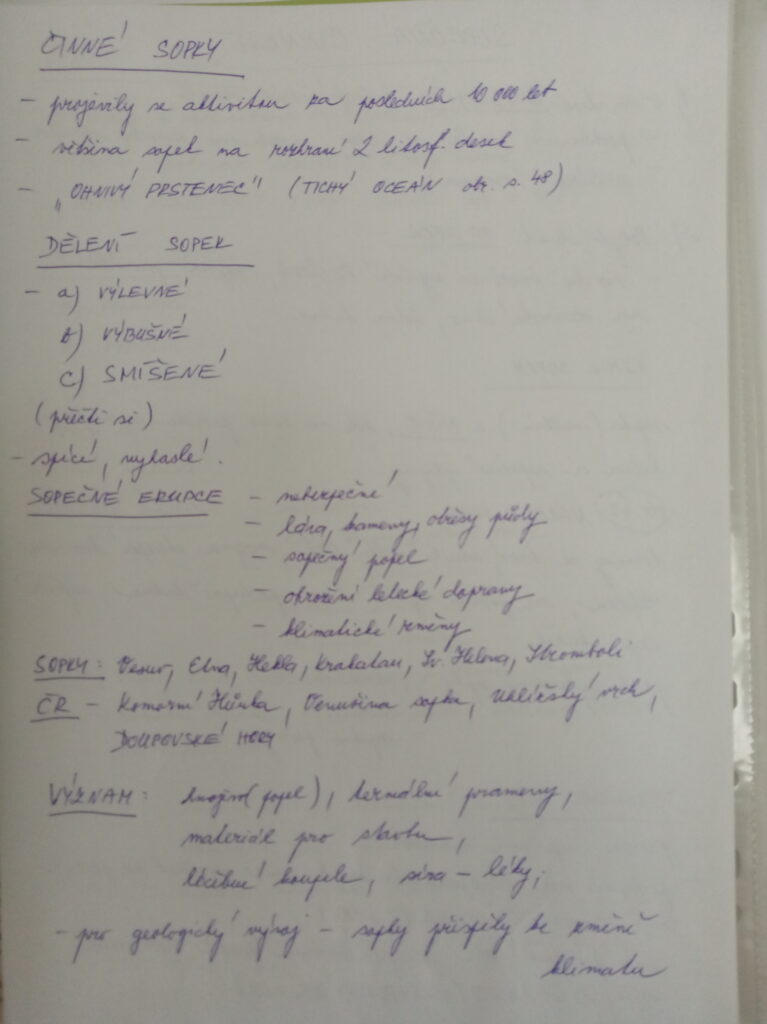 ČINNÉ SOPKY
- projevily se aktivitou za posledních 10 000 let
- většina sopek na rozhraní 2 litosf. desek
- „OHNIVÝ PRSTENEC" (TICHÝ OCEÁN obr. s. 48)
DĚLENÍ SOPEK
- a) VÝLEVNÉ
b) VÝBUŠNÉ
c) SMÍŠENÉ
(přečti si)
- spící, vyhaslé.
SOPEČNÉ ERUPCE - nebezpečné
- láva, kameny, otřesy půdy
- sopečný popel
- ohrožení letecké dopravy
- klimatické změny
SOPKY: Vesuv, Etna, Hekla, Krakatau, Sv. Helena, Stromboli
ČR - Komorní Hůrka, Venušina sopka, Uhlířský vrch,
DOUPOVSKÉ HORY
VÝZNAM: hnojivo (popel), termální prameny,
materiál pro stavbu,
léčebné koupele, síra - léky,
- pro geologický vývoj - sopky přispěly ke změně
klimatu